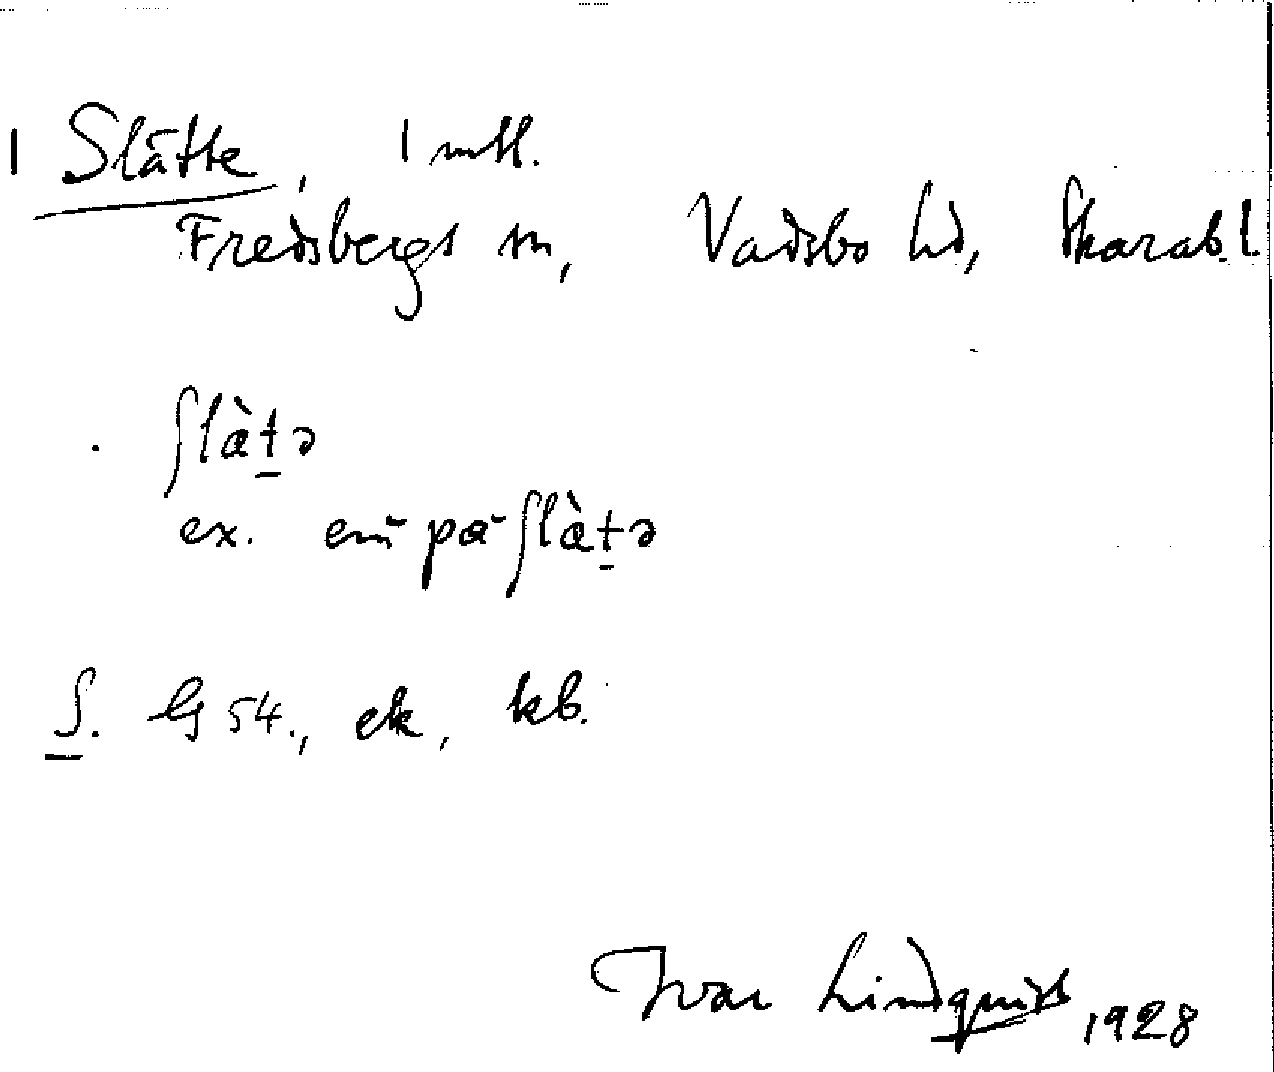 1 Slätte, 1 mtl.
Fredsbergs sn, Vadsbo hd, Skarab. l.
ʃlὰtə
ex. em på ʃlὰtə
S. G 54., ek, kb.
Ivar Lindquist, 1928